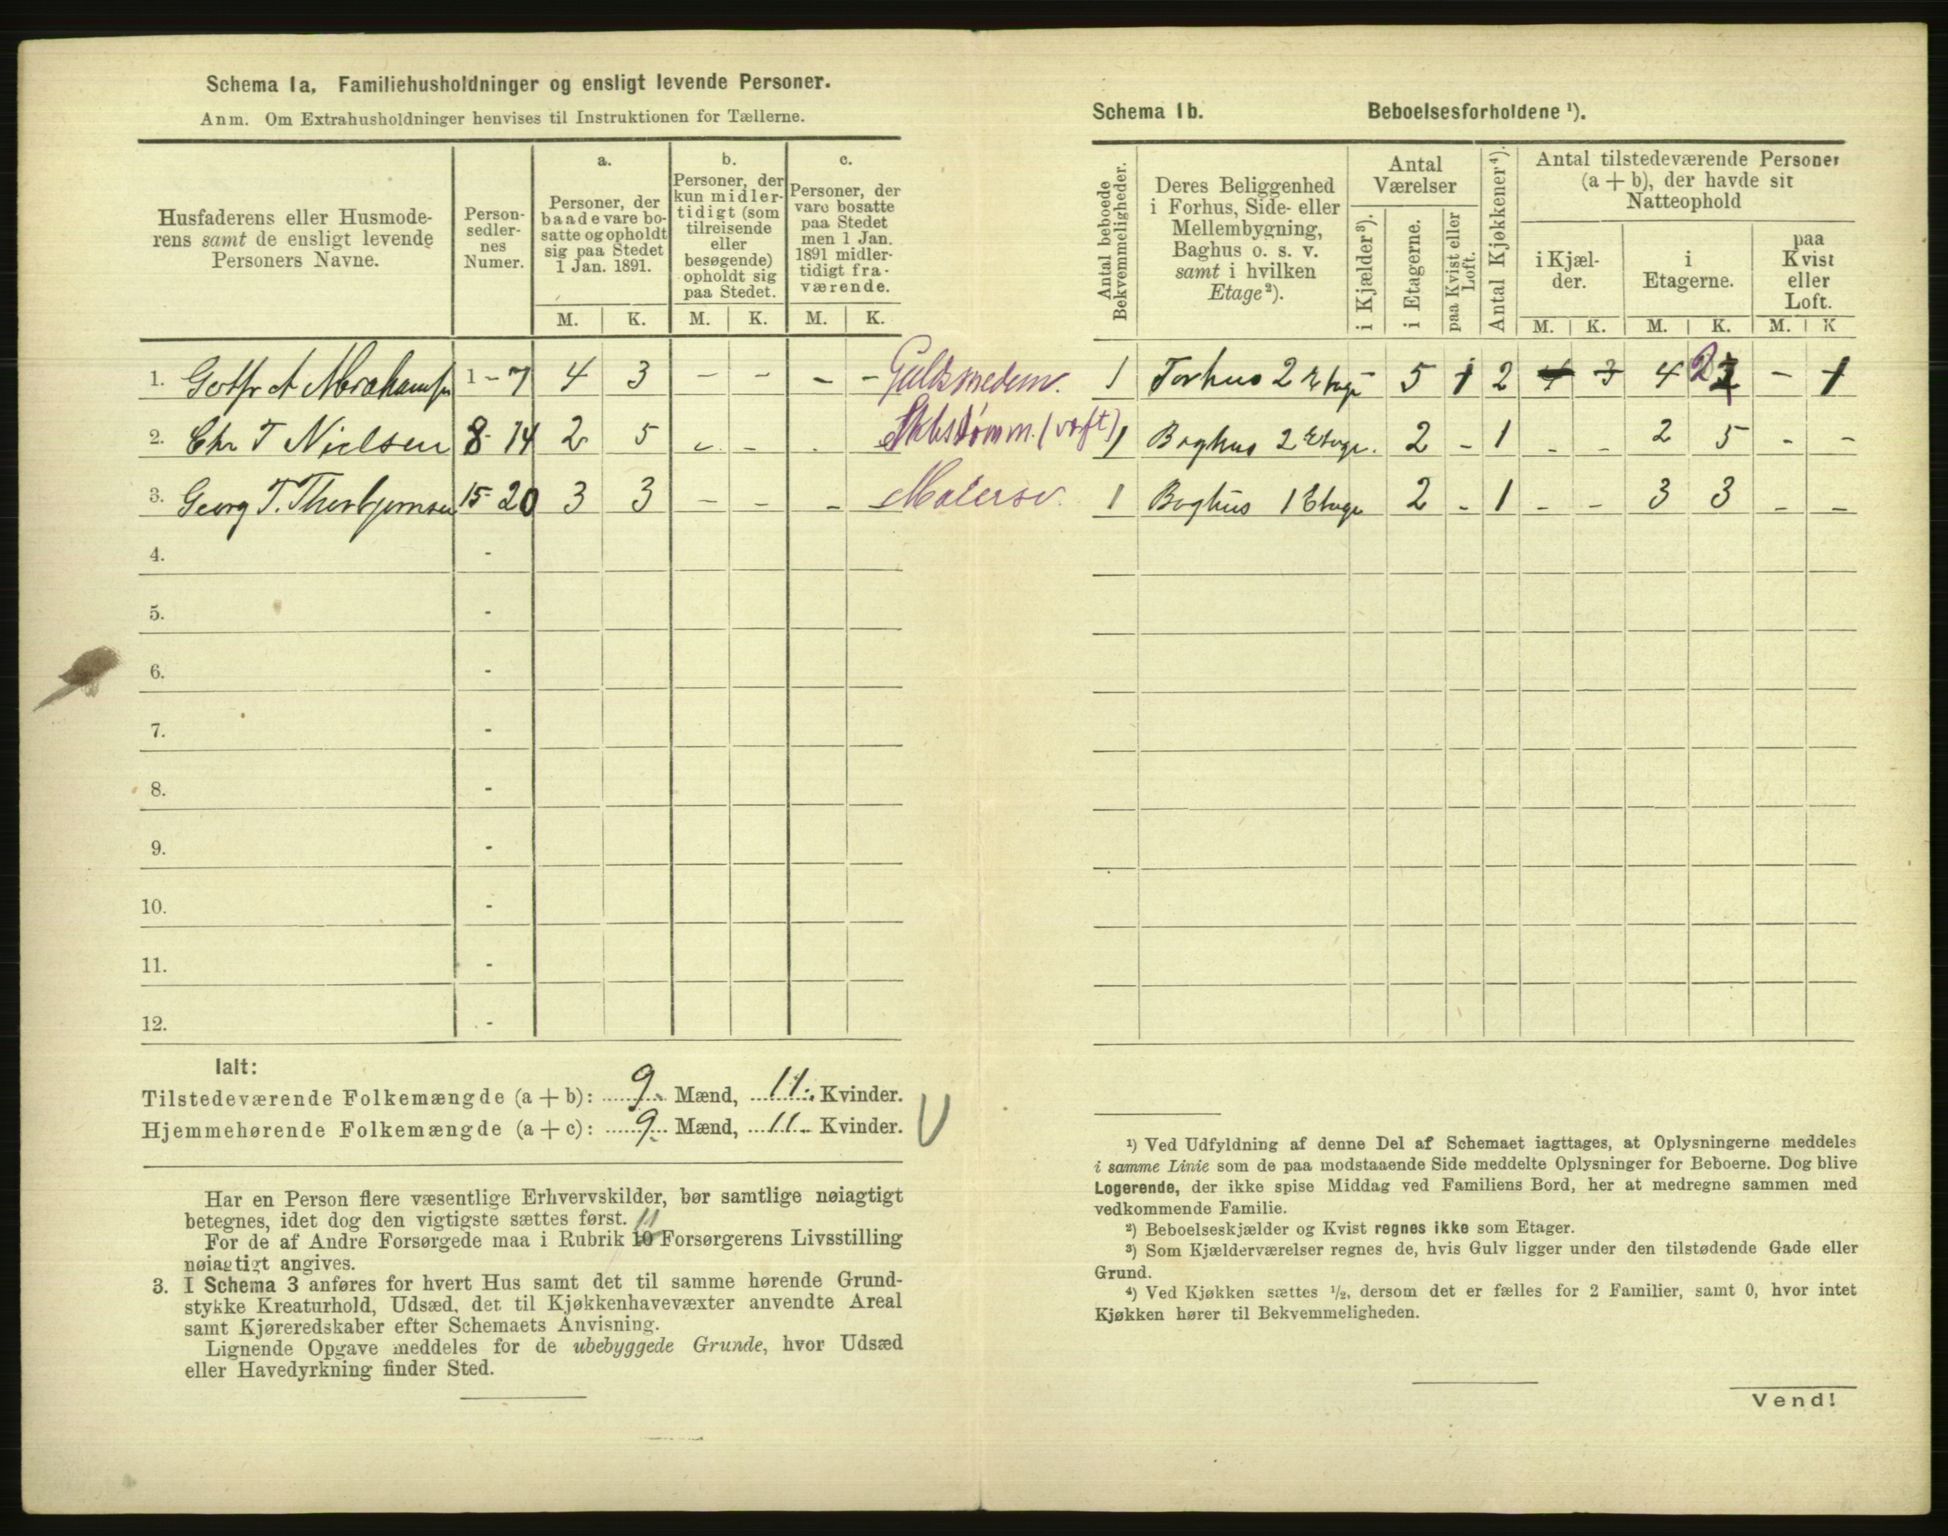 Schema 1a, Familiehusholdninger og ensligt levende Personer.
Anm. Om Extrahusholdninger henvises til Instruktionen for Tællerne.
Husfaderens eller Husmode-
rens samt de ensligt levende
Personers Navne.
Person-
sedler-
nes
Numer.
a.
Personer, der
baade vare bo-
satte og opholdt
sig paa Stedet
1 Jan. 1891.
b.
Personer, der
kun midler-
tidigt (som
tilreisende
eller
besøgende)
opholdt sig
paa Stedet.
c.
Personer, der
vare bosatte
paa Stedet
men 1 Jan.
1891 midler-
tidigt fra-
værende.
M. K. M. K. M. K.
1. Gotfr A Abrahamsen 1 - 7 4 3 - - - - Guldsmedem.
2. Chr T Nielsen 8 - 14 2 5 - - - Skibstømm. (verft)
3. Georg T. Thorbjørnsen 15 - 20 3 3 - - - Malersv.
4. -
5. -
6. -
7. -
8. -
9. -
10. -
11. -
12. -
Ialt:
Tilstedeværende Folkemængde (a + b): 9 Mænd, 11 Kvinder.
Hjemmehørende Folkemængde (a + c): 9 Mænd, 11 Kvinder.
Har en Person flere væsentlige Erhvervskilder, bør samtlige nøiagtigt
betegnes, idet dog den vigtigste sættes først.
11
For de af Andre Forsørgede maa i Rubrik 10 Forsørgerens Livsstilling
nøiagtigt angives.
3. I Schema 3 anføres for hvert Hus samt det til samme hørende Grund-
stykke Kreaturhold, Udsæd, det til Kjøkkenhavevæxter anvendte Areal
samt Kjøreredskaber efter Schemaets Anvisning.
Lignende Opgave meddeles for de ubebyggede Grunde, hvor Udsæd
eller Havedyrkning finder Sted.
Schema 1b. Beboelsesforholdene ¹).
Antal beboede
Bekvemmeligheder.
Deres Beliggenhed
i Forhus, Side- eller
Mellembygning,
Baghus o. s. v.
samt i hvilken
Etage²).
Antal
Værelser
i Kjælder³).
i Etagerne.
paa Kvist eller
Loft.
Antal Kjøkkener⁴).
Antal tilstedeværende Personer
(a + b), der havde sit
Natteophold
i Kjæl-
der.
i
Etagerne.
paa
Kvist
eller
Loft.
M. K. M. K. M. K
1 Forhus 2 Etage - 5 1 2 4 3 4 2 - 1
1 Baghus 2 Etage. 2 - 1 - - 2 5 - -
1 Baghus 1 Etage 2 - 1 - - 3 3 - -
¹) Ved Udfyldning af denne Del af Schemaet iagttages, at Oplysningerne meddeles
i samme Linie som de paa modstaaende Side meddelte Oplysninger for Beboerne. Dog blive
Logerende, der ikke spise Middag ved Familiens Bord, her at medregne sammen med
vedkommende Familie.
²) Beboelseskjælder og Kvist regnes ikke som Etager.
³) Som Kjælderværelser regnes de, hvis Gulv ligger under den tilstødende Gade eller
Grund.
⁴) Ved Kjøkken sættes ¹/₂, dersom det er fælles for 2 Familier, samt 0, hvor intet
Kjøkken hører til Bekvemmeligheden.
Vend!